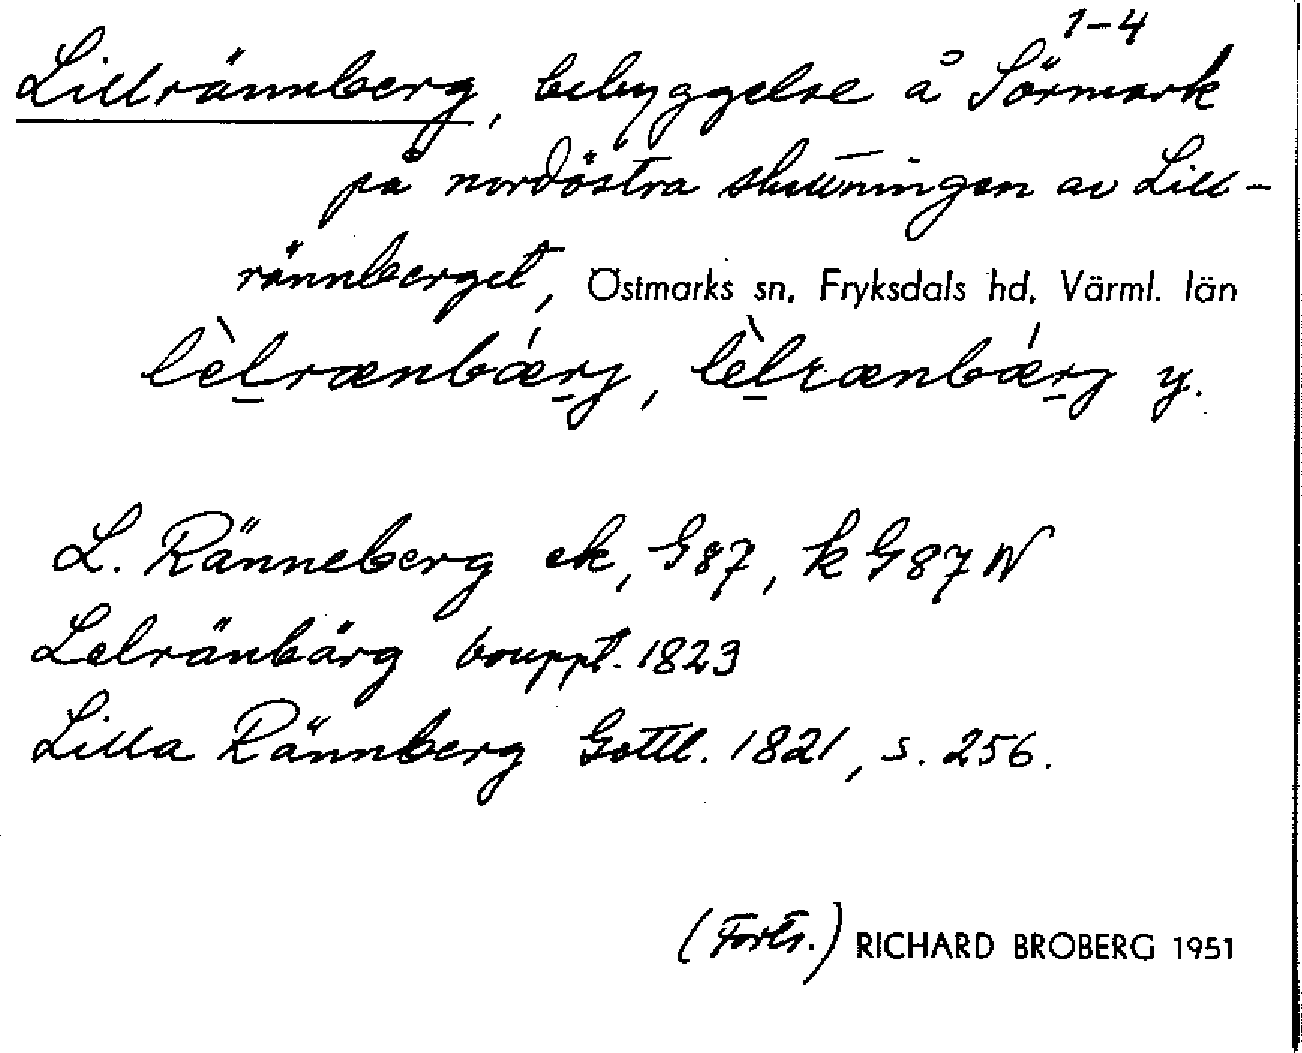 1-4
Lillrännberg, bebyggelse å Sörmark
på nordöstra sluttningen av Lill-
rännberget, Östmarks sn, Fryksdals hd, Värml. län
lèlrænbǽrj, lèlrænbǽrj y.
L. Ränneberg ek, G87, k G87 N
Lelränbärg bouppt. 1823
Lilla Rännberg Gottl. 1821, s. 256.
(Forts.) RICHARD BROBERG 1951